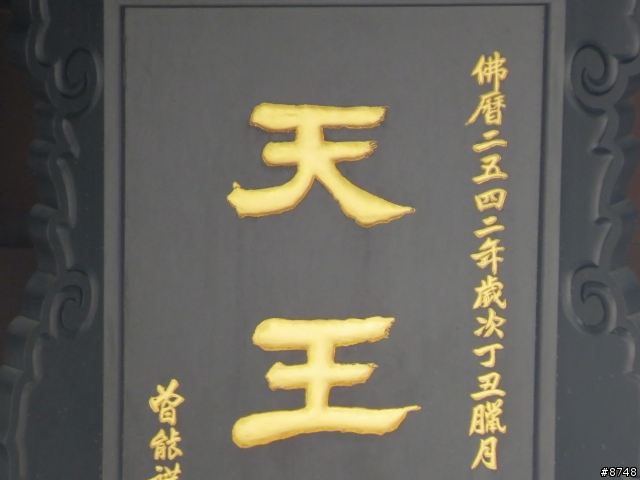 佛曆二五四二年歲次丁丑臘月
天王
曾能
#8748